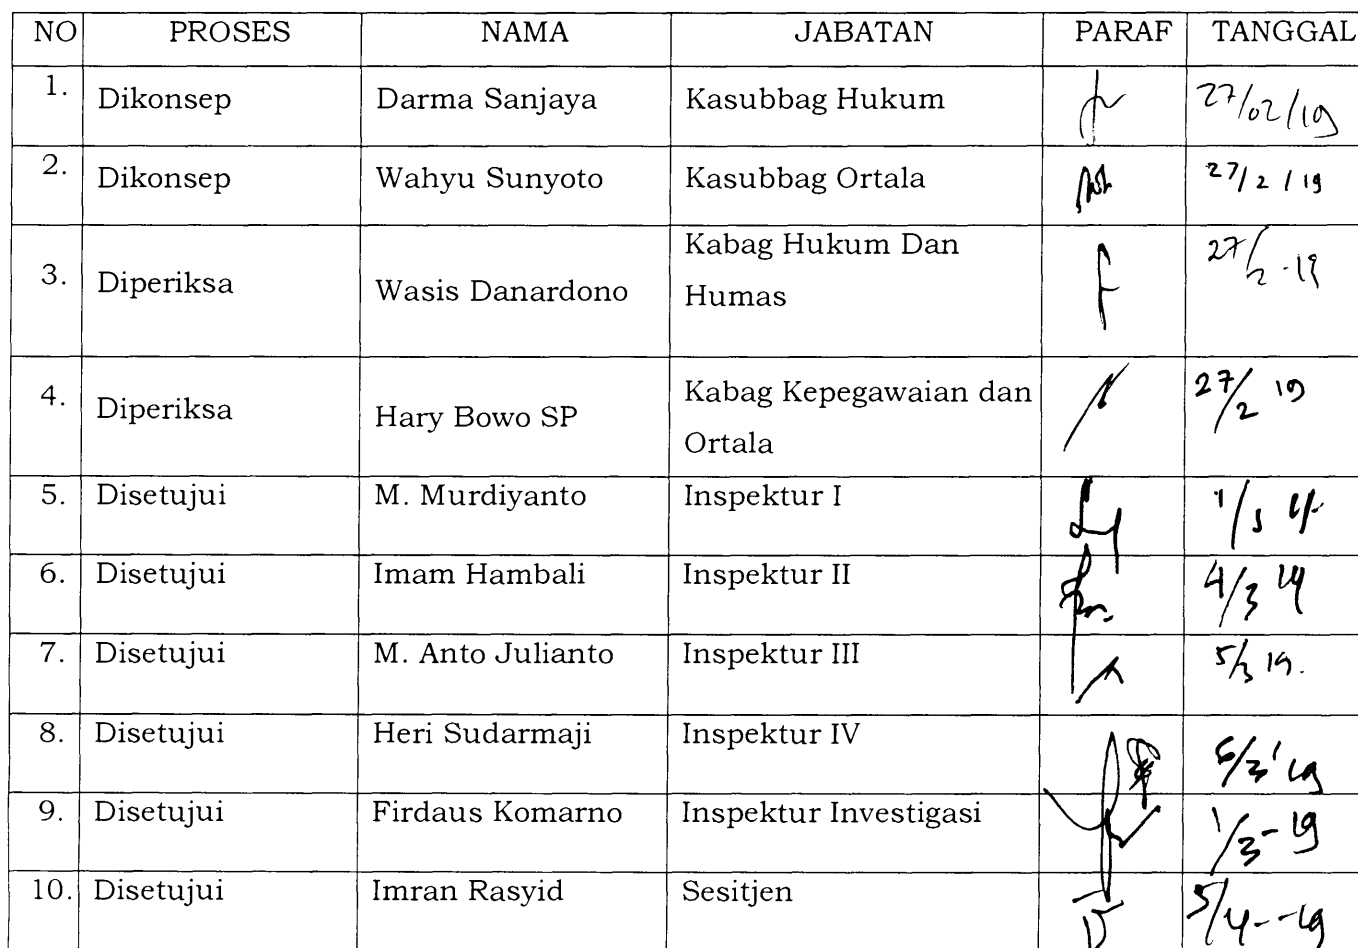 NO PROSES NAMA JABATAN PARAF TANGGAL
1. Dikonsep Darma Sanjaya Kasubbag Hukum 27/02/19
2. Dikonsep Wahyu Sunyoto Kasubbag Ortala 27/2/19
3. Diperiksa Wasis Danardono Kabag Hukum Dan
Humas 27/2-19
4. Diperiksa Hary Bowo SP Kabag Kepegawaian dan
Ortala 27/2 19
5. Disetujui M. Murdiyanto Inspektur I
6. Disetujui Imam Hambali Inspektur II 4/3 19
7. Disetujui M. Anto Julianto Inspektur III 5/3 19.
8. Disetujui Heri Sudarmaji Inspektur IV
9. Disetujui Firdaus Komarno Inspektur Investigasi 1/3-19
10. Disetujui Imran Rasyid Sesitjen 5/4--19